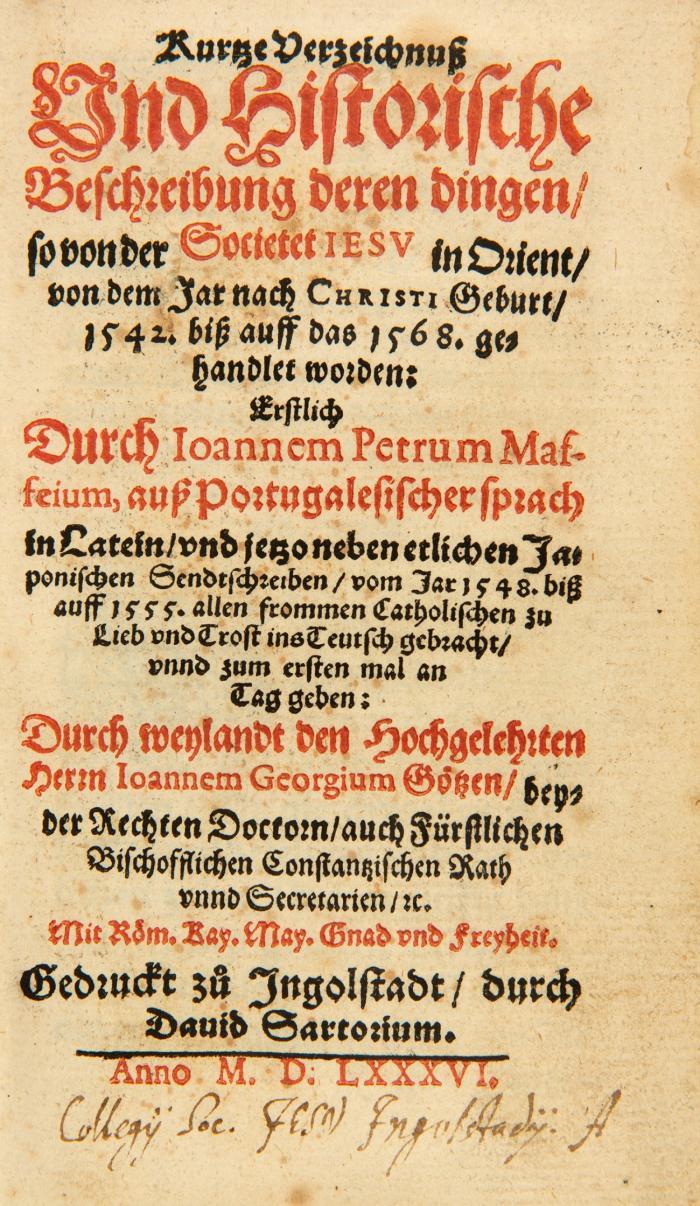 Kurtze Verzeichnuß
Vnd Historische
Beschreibung deren dingen/
so von der Societet IESV in Orient/
von dem Jar nach CHRISTI Geburt/
1542. biß auff das 1568. ge⸗
handlet worden:
Erstlich
Durch Ioannem Petrum Maf-
feium, auß Portugalesischer sprach
in Latein/vnd jetzo neben etlichen Ja⸗
ponischen Sendtschreiben/vom Jar 1548. biß
auff 1555. allen frommen Catholischen zu
Lieb vnd Trost ins Teutsch gebracht/
vnnd zum ersten mal an
Tag geben:
Durch weylandt den Hochgelehrten
Herrn Ioannem Georgium Götzen/ bey⸗
der Rechten Doctorn/auch Fürstlichen
Bischofflichen Constantzischen Rath
vnnd Secretarien/ꝛc.
Mit Röm. Kay. May. Gnad vnd Freyheit.
Gedruckt zů Ingolstadt/ durch
Dauid Sartorium.
Anno M. D. LXXXVI.
Collegij Soc. IESV Ingolstadij. A